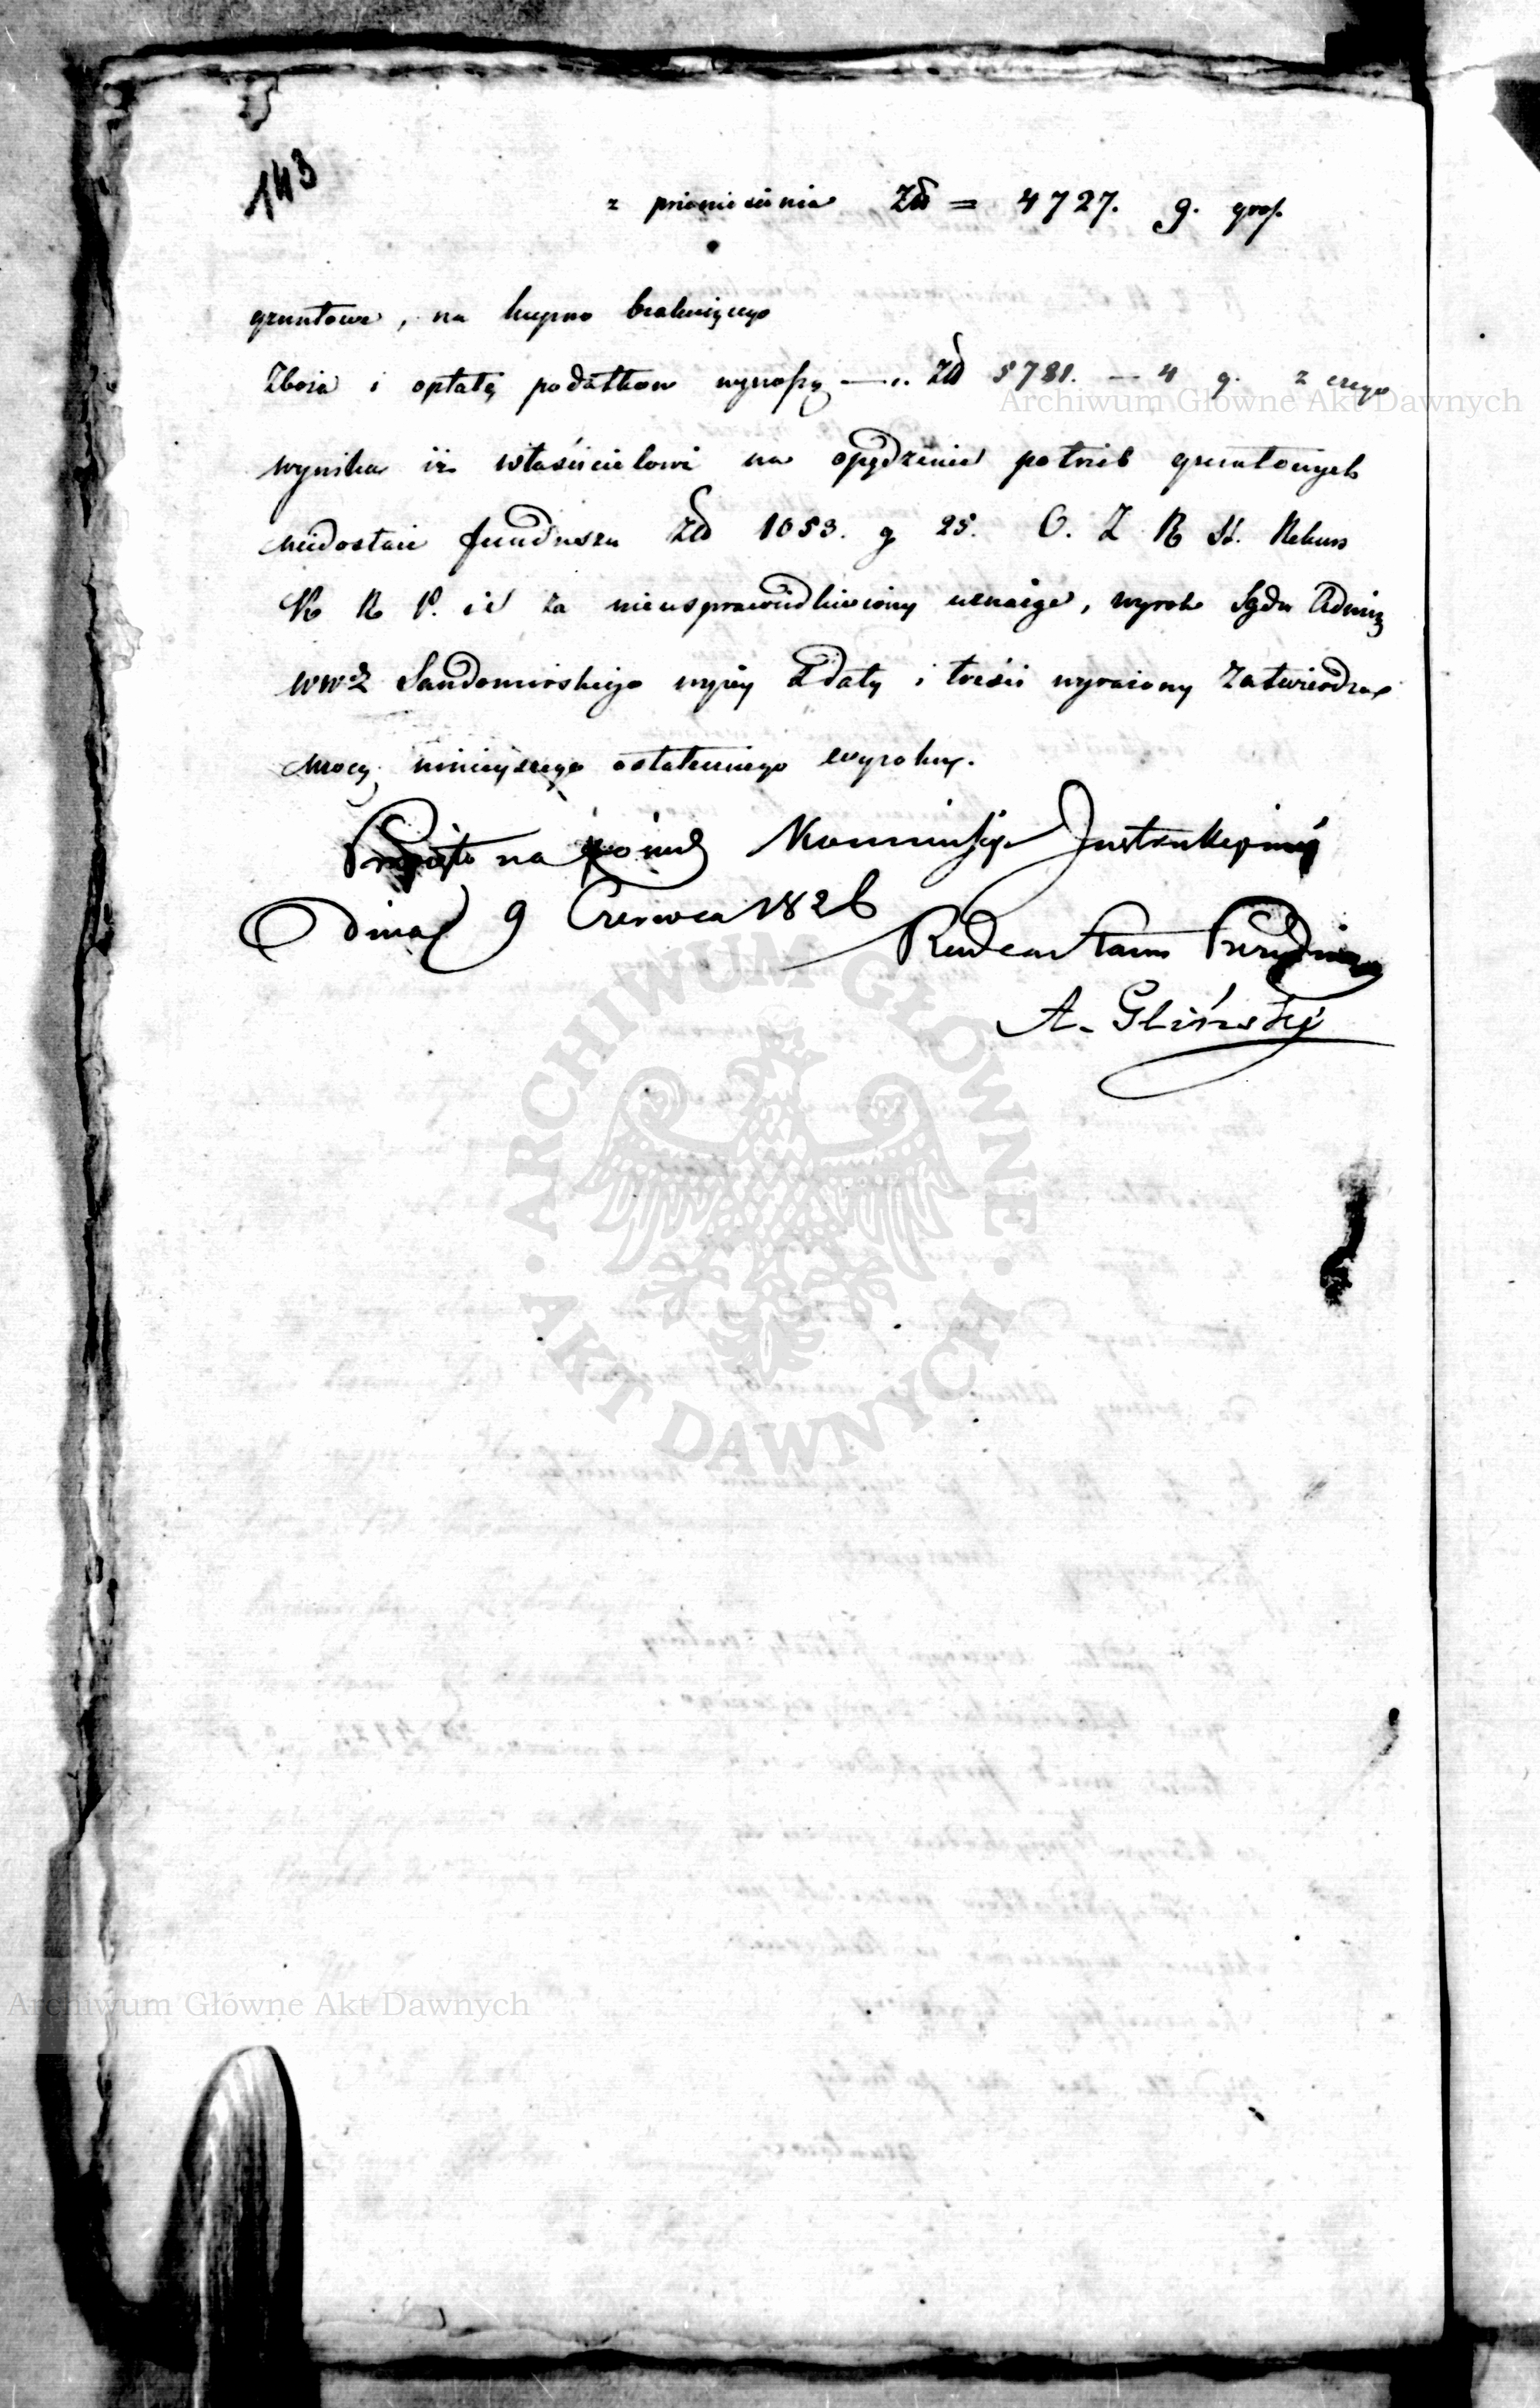 143
z przeniesienia Zł = 4727. g. 9 gros.
gruntowe, na kupno brakuiącego
Zboża i opłatę podatkow wynoszą —.. Zł 5781. — 4 g. z czego
wynika iż właścicielowi na opędzenie potrzeb gruntowych
niedostaie funduszu Zł 1053. g 25. O. Z R St. Rekurs
K R P. i S za nieusprawiedliwiony uznaiąc, wyrok Sądu
wwztwa Sandomirskiego wyżey z daty i treści wyrażony Zatwierdza
mocą ninieyszego ostatecznego wyroku.
Przyięto na Kommissyi Instrukcyiney
Dnia 9 Czerwca 1826
A. Gliński
Archiwum Główne Akt Dawnych
ARCHIWUM GŁÓWNE · AKT DAWNYCH ·
Archiwum Główne Akt Dawnych